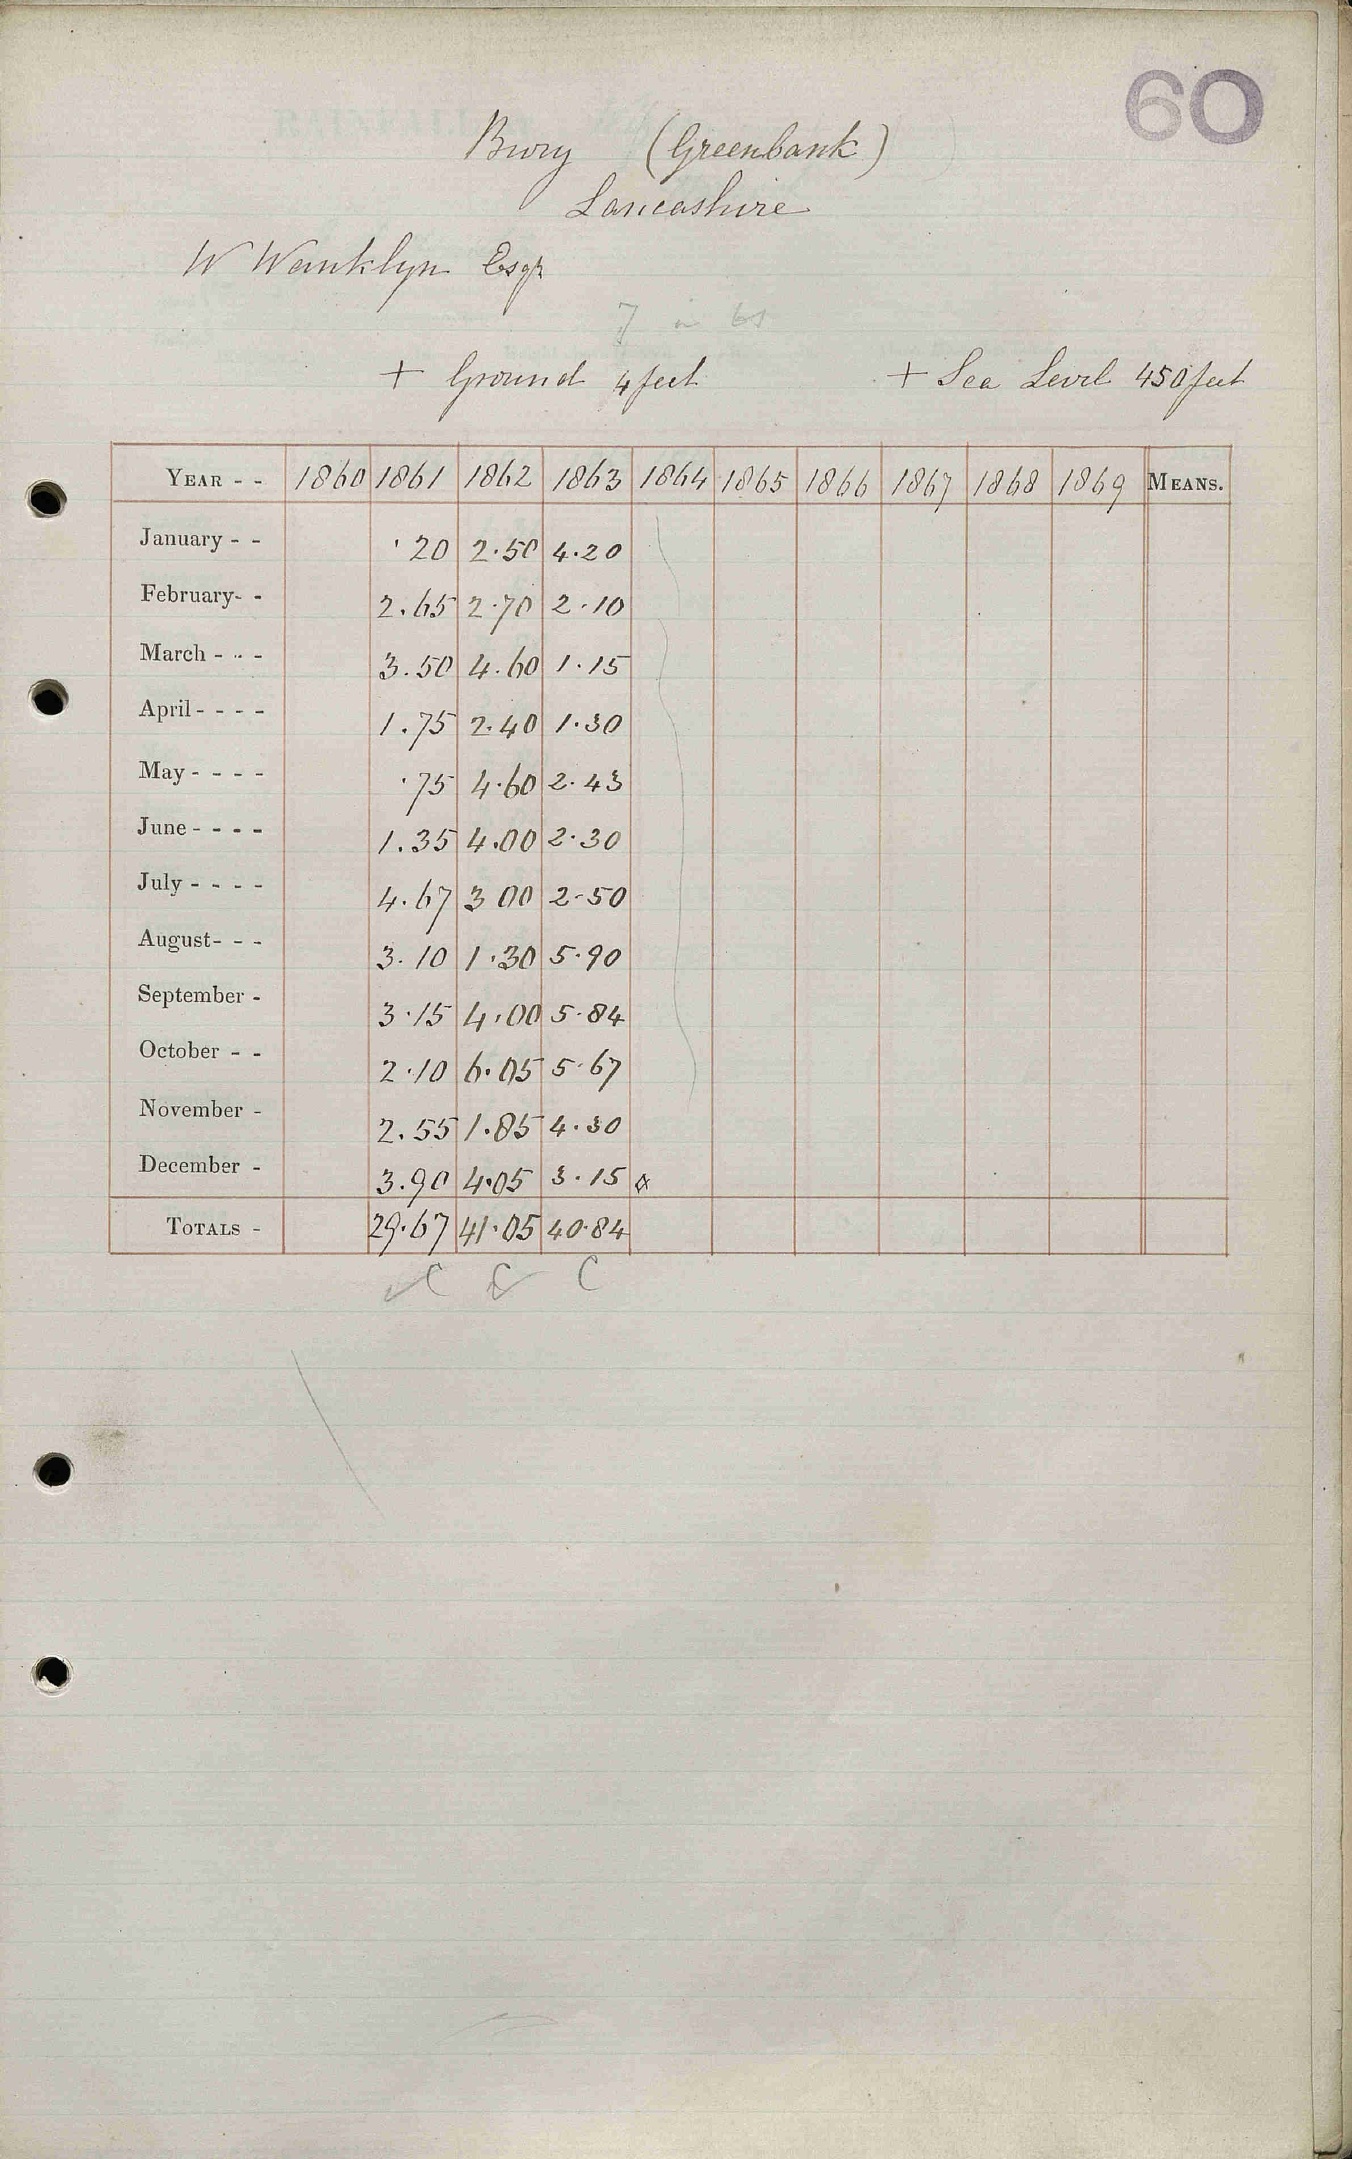 60
Bury (Greenbank)
Lancashire
W Wanklyn Esqr
+ Ground 4 feet + Sea Level 450 feet
YEAR - - 1860 1861 1862 1863 1864 1865 1866 1867 1868 1869 MEANS.
January - - ·20 2.50 4.20
February- - 2.65 2.70 2.10
March - - - 3.50 4.60 1.15
April - - - - 1.75 2.40 1.30
May - - - - ·75 4.60 2.43
June - - - - 1.35 4.00 2.30
July - - - - 4.67 3 00 2.50
August- - - 3.10 1.30 5.90
September - 3.15 4.00 5.84
October - - 2.10 6.05 5.67
November - 2.55 1.85 4.30
December - 3.90 4.05 3.15
TOTALS - 29.67 41.05 40.84
C C C